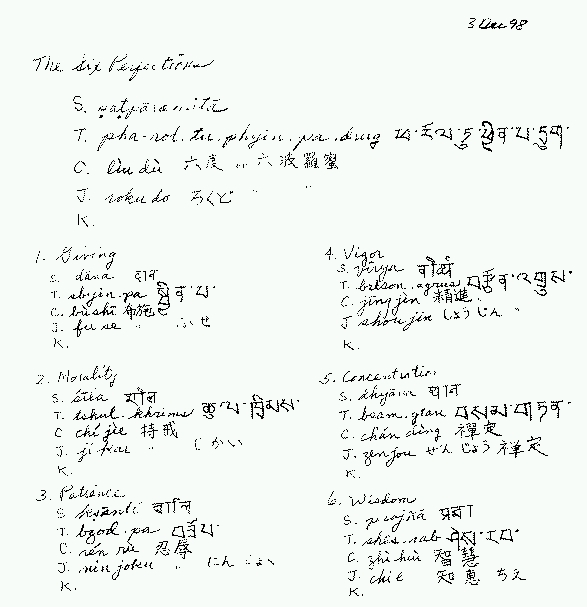 3 98
The Six Perfections
S. ṣaṭpāramitā
T. pha-rol.tu.phyin.pa.drug ཕ་རོལ་ཏུ་ཕྱིན་པ་དྲུག་
C. liù dù 六度 or 六波羅蜜
J. rokudo ろくど " "
K.
1. Giving
S. dāna दान
T. sbyin.pa སྦྱིན་པ་
C. bùshī 布施
J. fuse " ふせ
K.
2. Morality
S. śīla शील
T. tshul.khrims ཚུལ་ཁྲིམས་
C. chí jiè 持戒
J. jikai " じかい
K.
3. Patience
S. kṣānti क्षान्ति
T. bzod.pa བཟོད་པ་
C. rěn rù 忍辱
J. nin joku " にん
K.
4. Vigor
S. vīrya वीर्य
T. brtson.agrus བརྩོན་འགྲུས་
C. jīng jìn 精進
J. shou jin しょうじん "
K.
5. Concentration
S. dhyāna ध्यान
T. bsam.gtan བསམ་གཏན་
C. chán dìng 禪定
J. zenjou ぜんじょう 禅定
K.
6. Wisdom
S. prajñā प्रज्ञा
T. shes.rab ཤེས་རབ་
C. zhì huì 智慧
J. chie 知恵 ちえ
K.